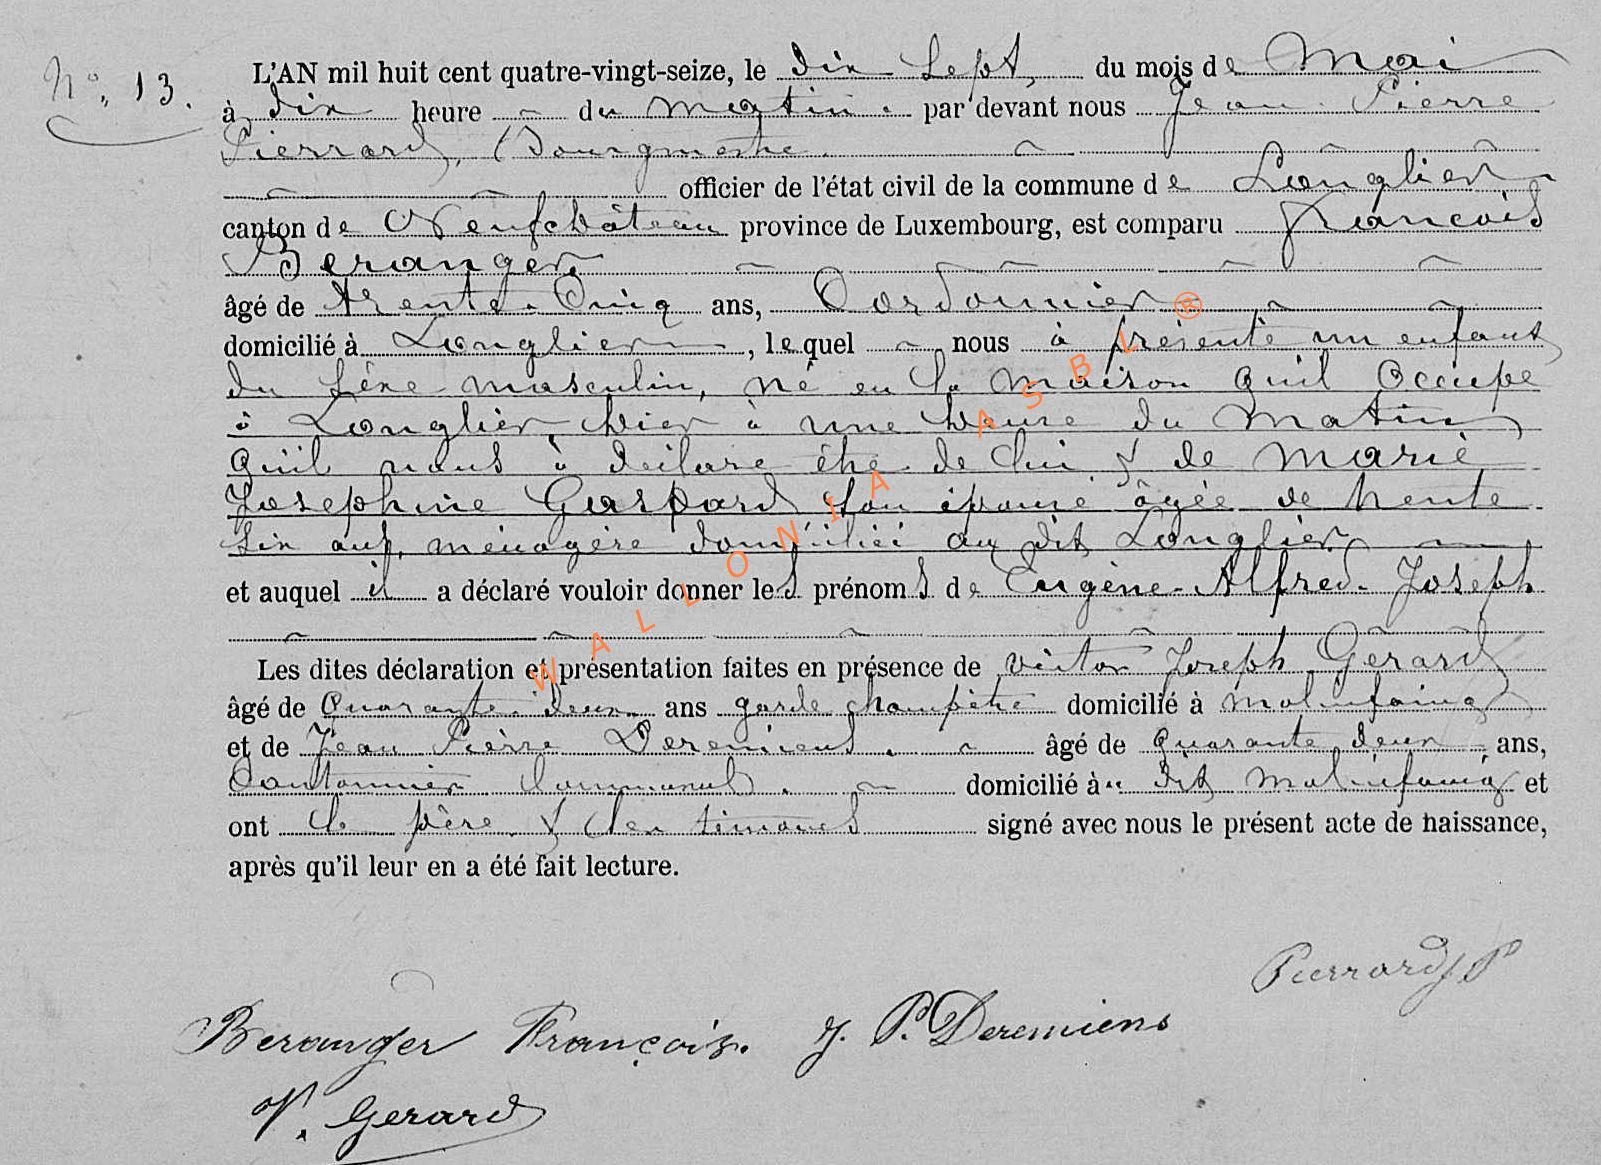 N° 13.
L'AN mil huit cent quatre-vingt-seize, le dix Sept, du mois de Mai
à dix heure du matin. par devant nous Jean Pierre
Pierrard, Bourgmestre.
officier de l'état civil de la commune de Longlier
canton de Neufchâteau province de Luxembourg, est comparu François
Beranger,
âgé de trente-Cinq ans, Cordonnier
domicilié à Longlier, lequel nous à présenté un enfant
du sêxe masculin, né en la maison qu'il Occupe
à Longlier hier à une heure du Matin
Qu'il nous à déclaré être de lui & de Marie
Josephine Gaspard son épouse âgée de trente
six ans, ménagère domiciliée au dit Longlier
et auquel il a déclaré vouloir donner les prénoms de Eugène-Alfred-Joseph
Les dites déclaration et présentation faites en présence de victor Joseph Gérard
âgé de Quarante-deux ans garde champêtre domicilié à Molinfaing
et de Jean Pierre Deremiens. âgé de Quarante deux ans,
Cantonnier Communal. domicilié à u dit Molinfaing et
ont le père & les témoins signé avec nous le présent acte de naissance,
après qu'il leur en a été fait lecture.
Pierrard JP
Beranger François. J. P. Deremiens
V. Gerard
WALLONIA ASBL ®